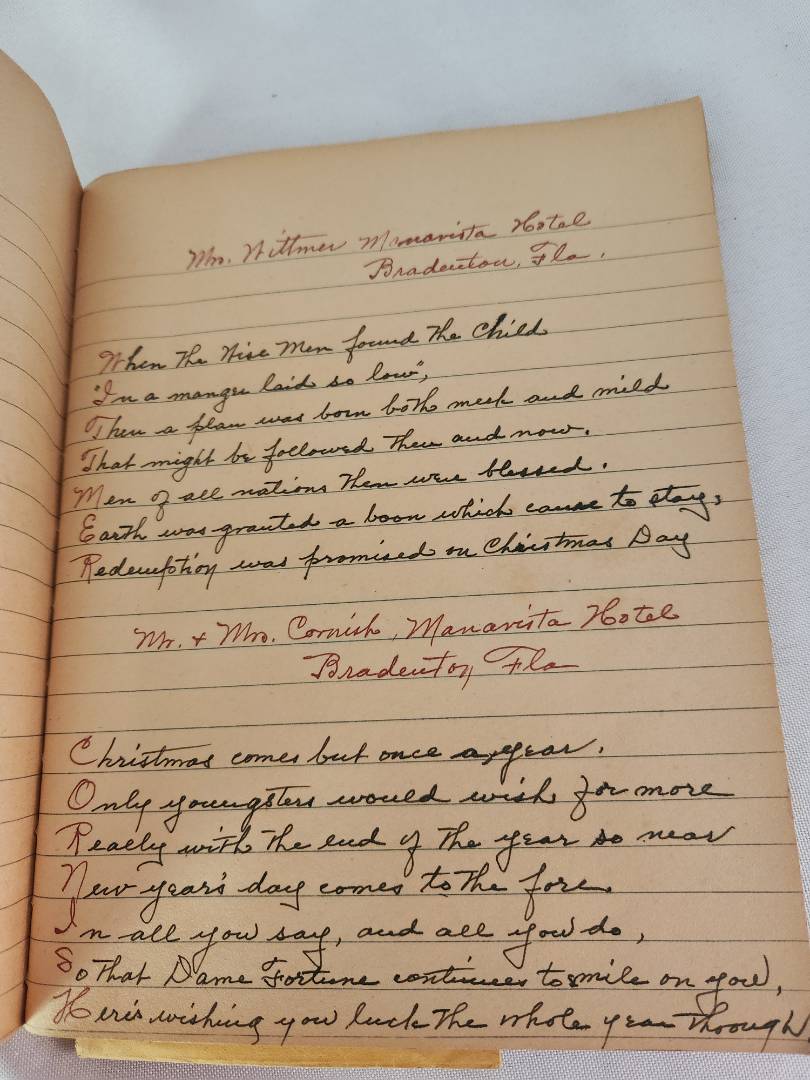 Mrs. Wittmer Manavista Hotel
Bradenton, Fla.
When the Wise Men found the Child
"In a manger laid so low",
Then a plan was born both meek and mild
That might be followed then and now.
Men of all nations then were blessed.
Earth was granted a boon which came to stay,
Redemption was promised on Christmas Day
Mr. + Mrs. Cornish, Manavista Hotel
Bradenton, Fla
Christmas comes but once a year.
Only youngsters would wish for more
Really with the end of the year so near
New Year's day comes to the fore.
In all you say, and all you do,
So that Dame Fortune continues to smile on you,
Here's wishing you luck the whole year through.